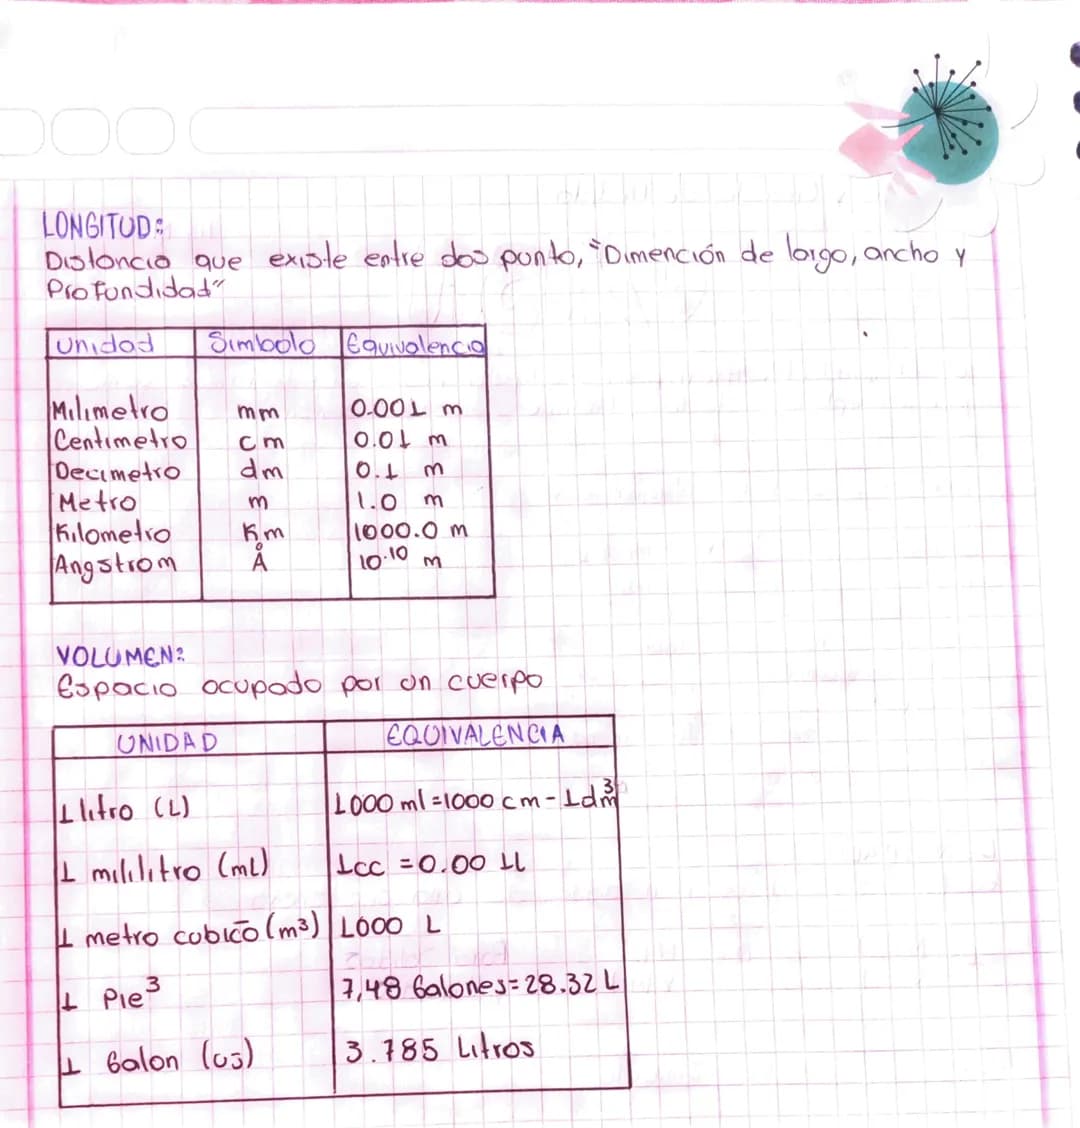 LONGITUD:
Distancia que existe entre dos punto, "Dimención de largo, ancho y
Profundidad"
Unidad Simbolo Equivalencia
Milimetro mm 0.001 m
Centimetro cm 0.01 m
Decimetro dm 0.1 m
Metro m 1.0 m
Kilometro Km 1000.0 m
Angstrom Å 10.10 m
VOLUMEN:
Espacio ocupado por un cuerpo
UNIDAD EQUIVALENCIA
1 litro (L) 1000 ml =1000 cm - 1dm3
1 mililitro (mL) 1cc = 0.00 1L
1 metro cubico (m3) 1000 L
1 Pie3 7,48 Galones= 28.32 L
1 Galon (us) 3.785 Litros